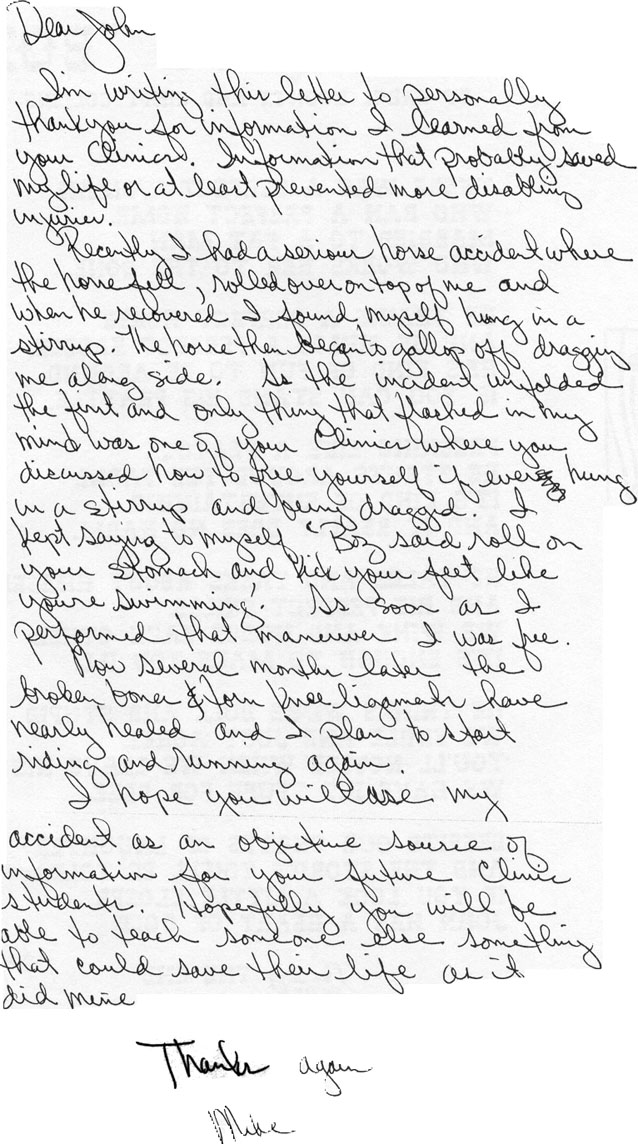 Dear John
I'm writing this letter to personally
thankyou for information I learned from
your Clinics. Information that probably saved
my life or at least prevented more disabling
injuries.
Recently I had a serious horse accident where
the horse fell, rolled over on top of me and
when he recovered I found myself hung in a
stirrup. The horse then began to gallop off dragging
me along side. As the incident unfolded
the first and only thing that flashed in my
mind was one of your Clinics where you
discussed how to free yourself if ever hung
in a stirrup and being dragged. I
kept saying to myself "Boz said roll on
your stomach and kick your feet like
you're swimming". As soon as I
performed that maneuver I was free.
Now several months later the
broken bones & torn knee ligaments have
nearly healed and I plan to start
riding and running again.
I hope you will use my
accident as an objective source of
information for your future Clinic
students. Hopefully you will be
able to teach someone else something
that could save their life as it
did mine
Thanks again
Mike